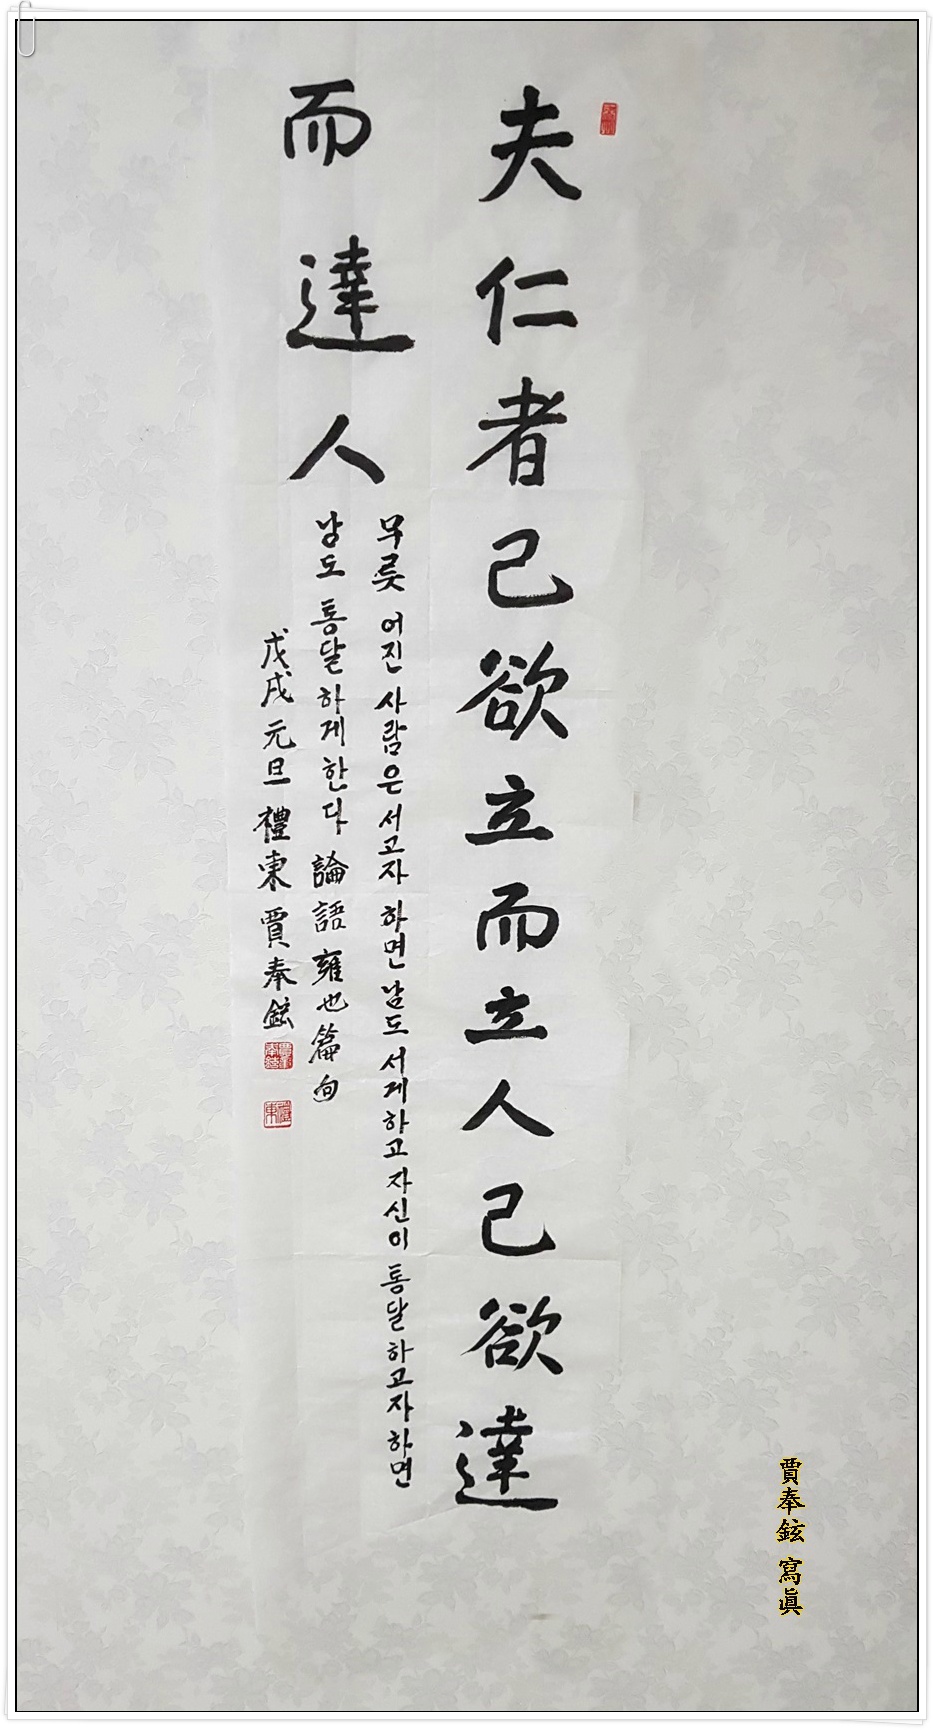 夫仁者己欲立而立人己欲達
而達人
무릇 어진 사람은 서고자 하면 남도 서게하고 자신이 통달하고자 하면
남도 통달하게 한다 論語 雍也篇 句
戊戌 元旦 禮東 賈奉鉉
賈奉鉉 寫眞